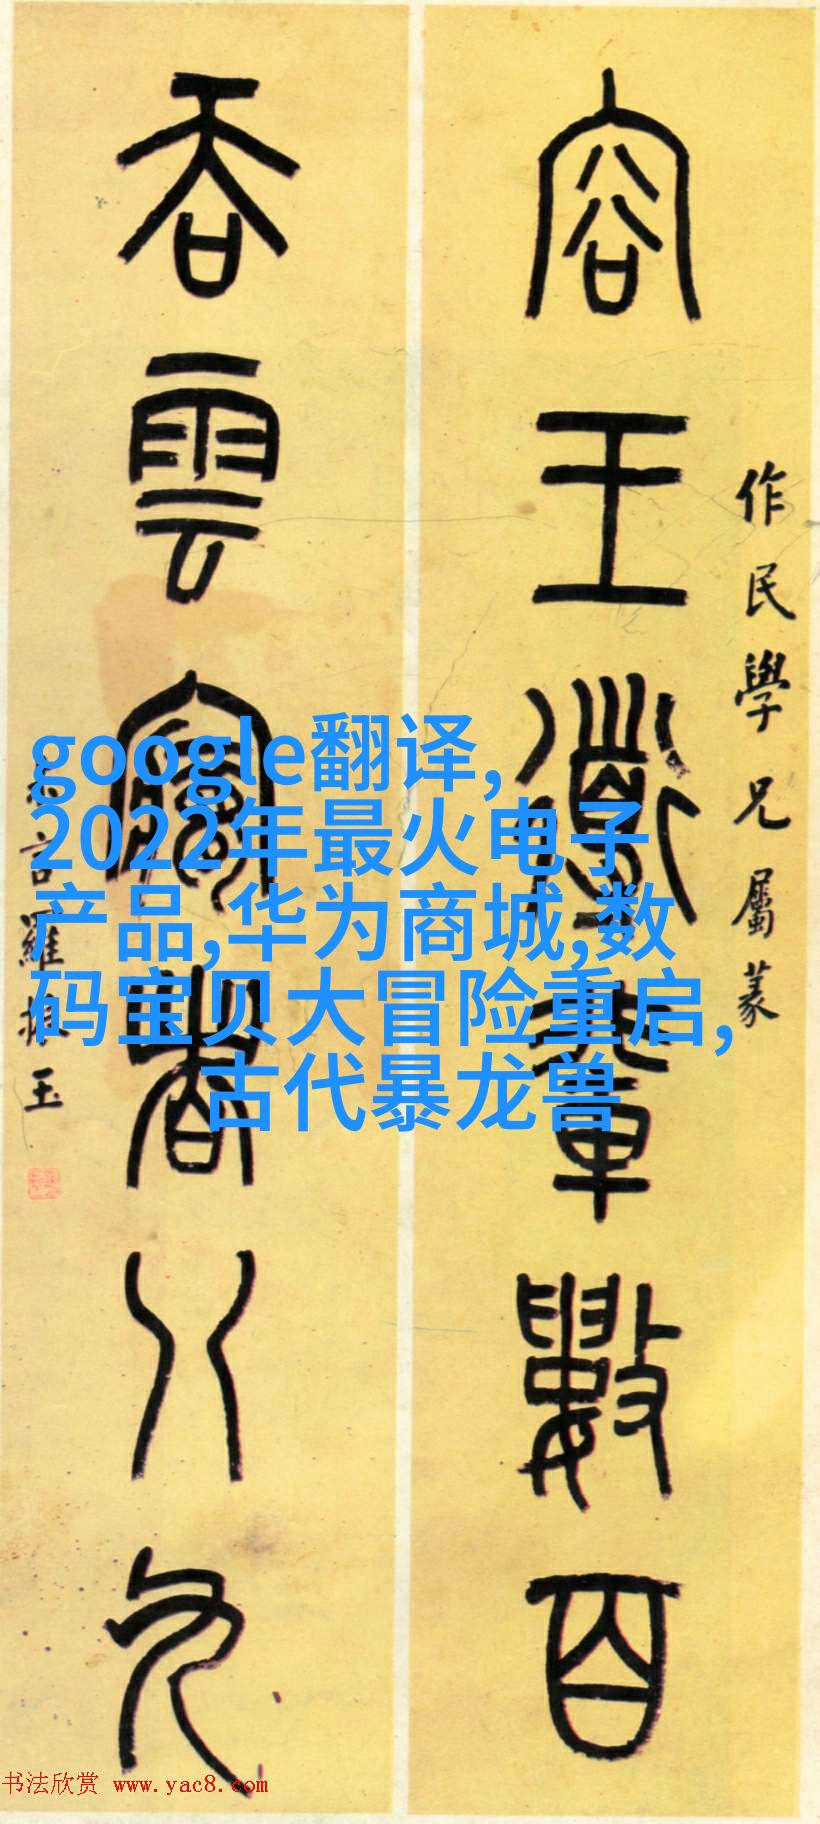 作民學兄屬篆
容王導輩數百
吞雲夢者八九
叔言羅振玉
google翻译,
2022年最火电子
产品,华为商城,数
码宝贝大冒险重启,
古代暴龙兽
书法欣赏 www.yac8.com